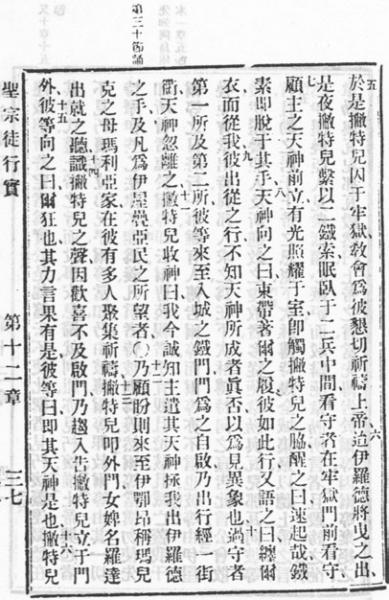 第三十節誦
五於是撇特兒囚于牢獄敎會爲彼懇切祈禱上帝六迨伊羅德將曳之出
是夜撇特兒繫以二鐵索眠臥于二兵中間看守者在牢獄門前看守
七顧主之天神前立有光照耀于室卽觸撇特兒之脇醒之曰速起哉鐵
素卽脫于其手八天神向之曰束帶著爾之履彼如此行又語之曰纏爾
衣而從我九彼出從之行不知天神所成者眞否以爲見異象也十過守者
第一所及第二所彼等來至入城之鐵門門爲之自啟乃出行經一街
衢天神忽離之十一撇特兒收神曰我今誠知主遣其天神拯我出伊羅德
之手及凡爲伊屋疊亞民之所望者〇十二乃顧盼則來至伊鄂昻稱瑪兒
克之母瑪利亞家在彼有多人聚集祈禱十三撇特兒叩外門女婢名羅達
出就之聽十四識撇特兒之聲因歡喜不及啟門乃趨入吿撇特兒立于門
外十五彼等向之曰爾狂也其力言果有是彼等曰卽其天神是也十六撇特兒
聖宗徒行實 第十二章 三七